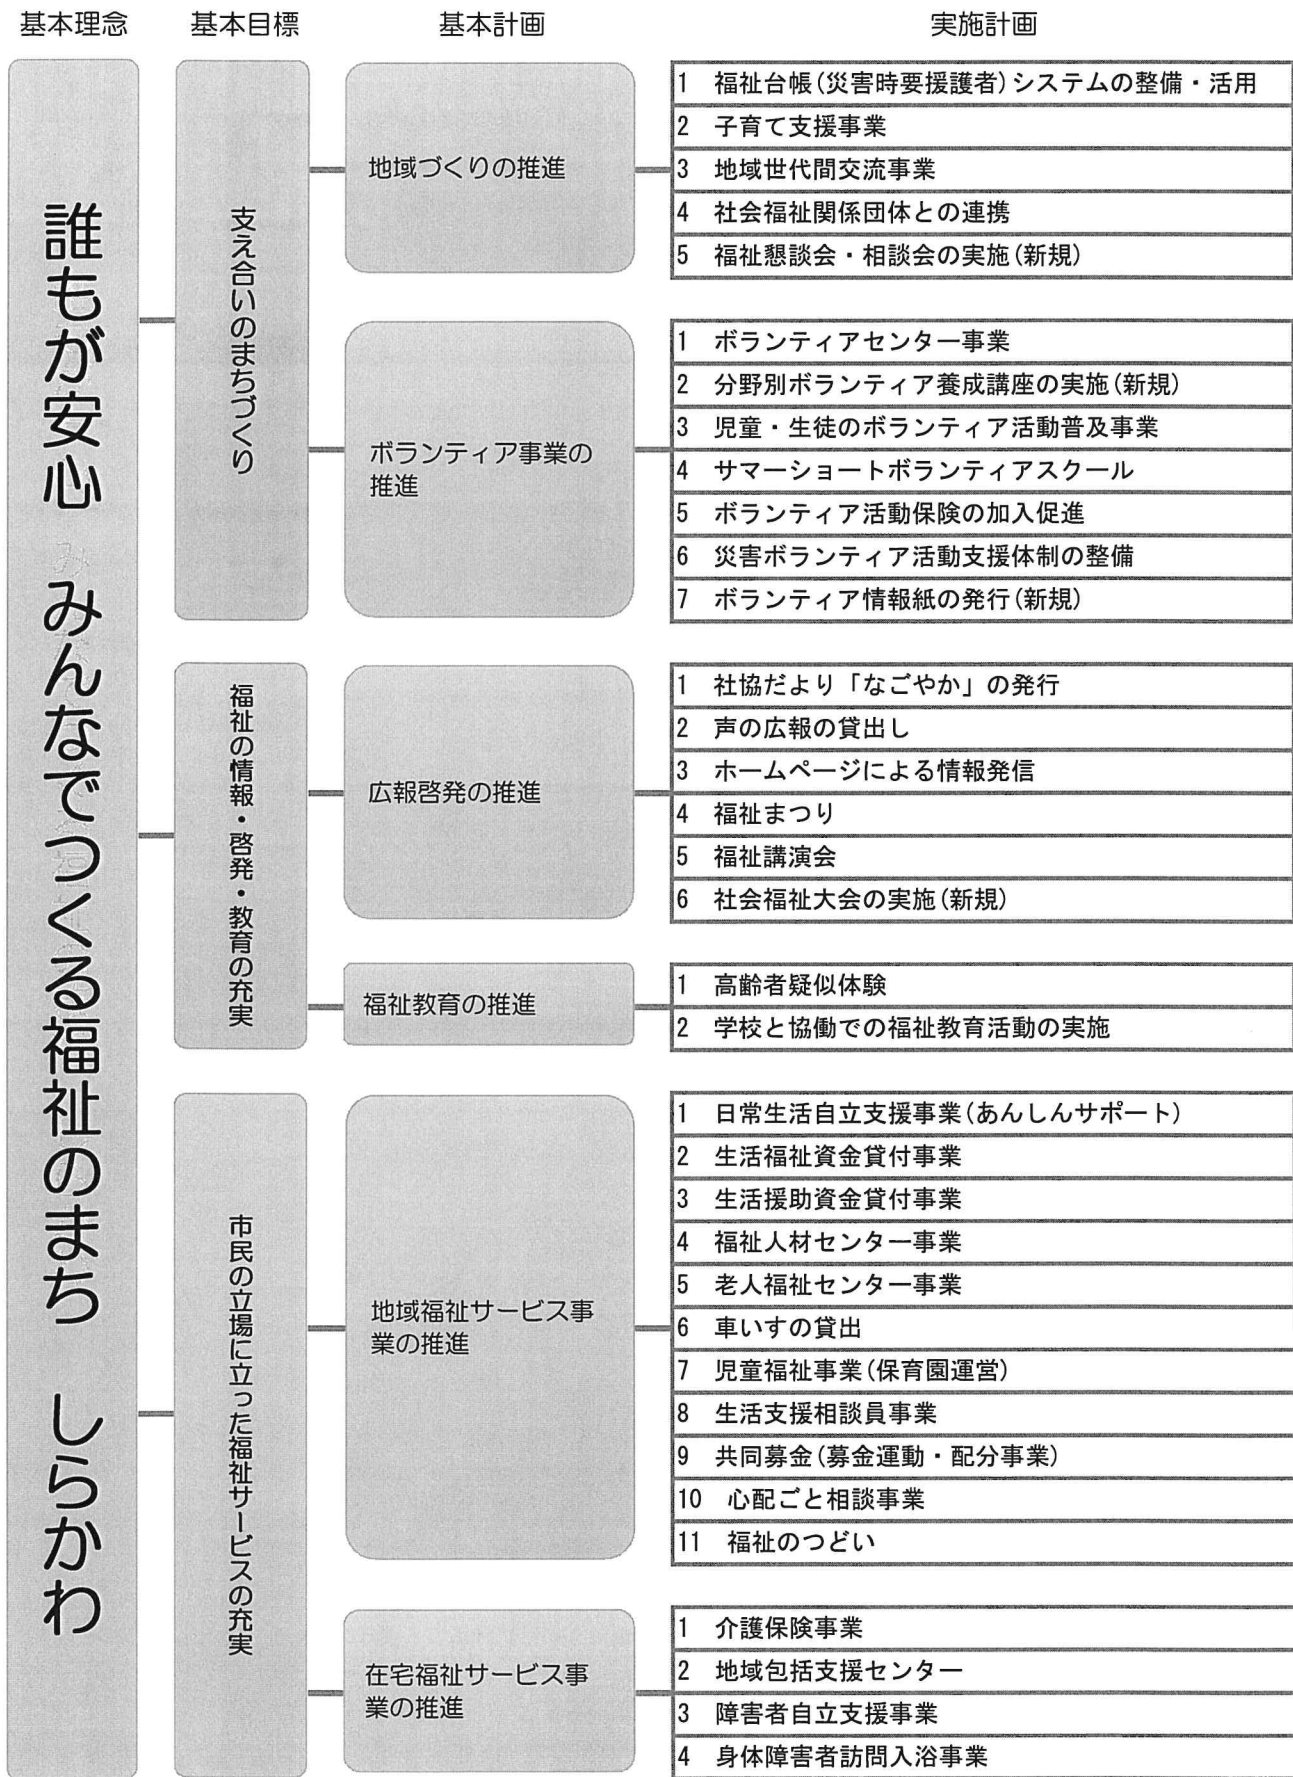 基本理念 基本目標 基本計画 実施計画
誰もが安心 みんなでつくる福祉のまち しらかわ
支え合いのまちづくり
地域づくりの推進
1 福祉台帳(災害時要援護者)システムの整備・活用
2 子育て支援事業
3 地域世代間交流事業
4 社会福祉関係団体との連携
5 福祉懇談会・相談会の実施(新規)
ボランティア事業の
推進
1 ボランティアセンター事業
2 分野別ボランティア養成講座の実施(新規)
3 児童・生徒のボランティア活動普及事業
4 サマーショートボランティアスクール
5 ボランティア活動保険の加入促進
6 災害ボランティア活動支援体制の整備
7 ボランティア情報紙の発行(新規)
福祉の情報・啓発・教育の充実
広報啓発の推進
1 社協だより「なごやか」の発行
2 声の広報の貸出し
3 ホームページによる情報発信
4 福祉まつり
5 福祉講演会
6 社会福祉大会の実施(新規)
福祉教育の推進
1 高齢者疑似体験
2 学校と協働での福祉教育活動の実施
市民の立場に立った福祉サービスの充実
地域福祉サービス事
業の推進
1 日常生活自立支援事業(あんしんサポート)
2 生活福祉資金貸付事業
3 生活援助資金貸付事業
4 福祉人材センター事業
5 老人福祉センター事業
6 車いすの貸出
7 児童福祉事業(保育園運営)
8 生活支援相談員事業
9 共同募金(募金運動・配分事業)
10 心配ごと相談事業
11 福祉のつどい
在宅福祉サービス事
業の推進
1 介護保険事業
2 地域包括支援センター
3 障害者自立支援事業
4 身体障害者訪問入浴事業